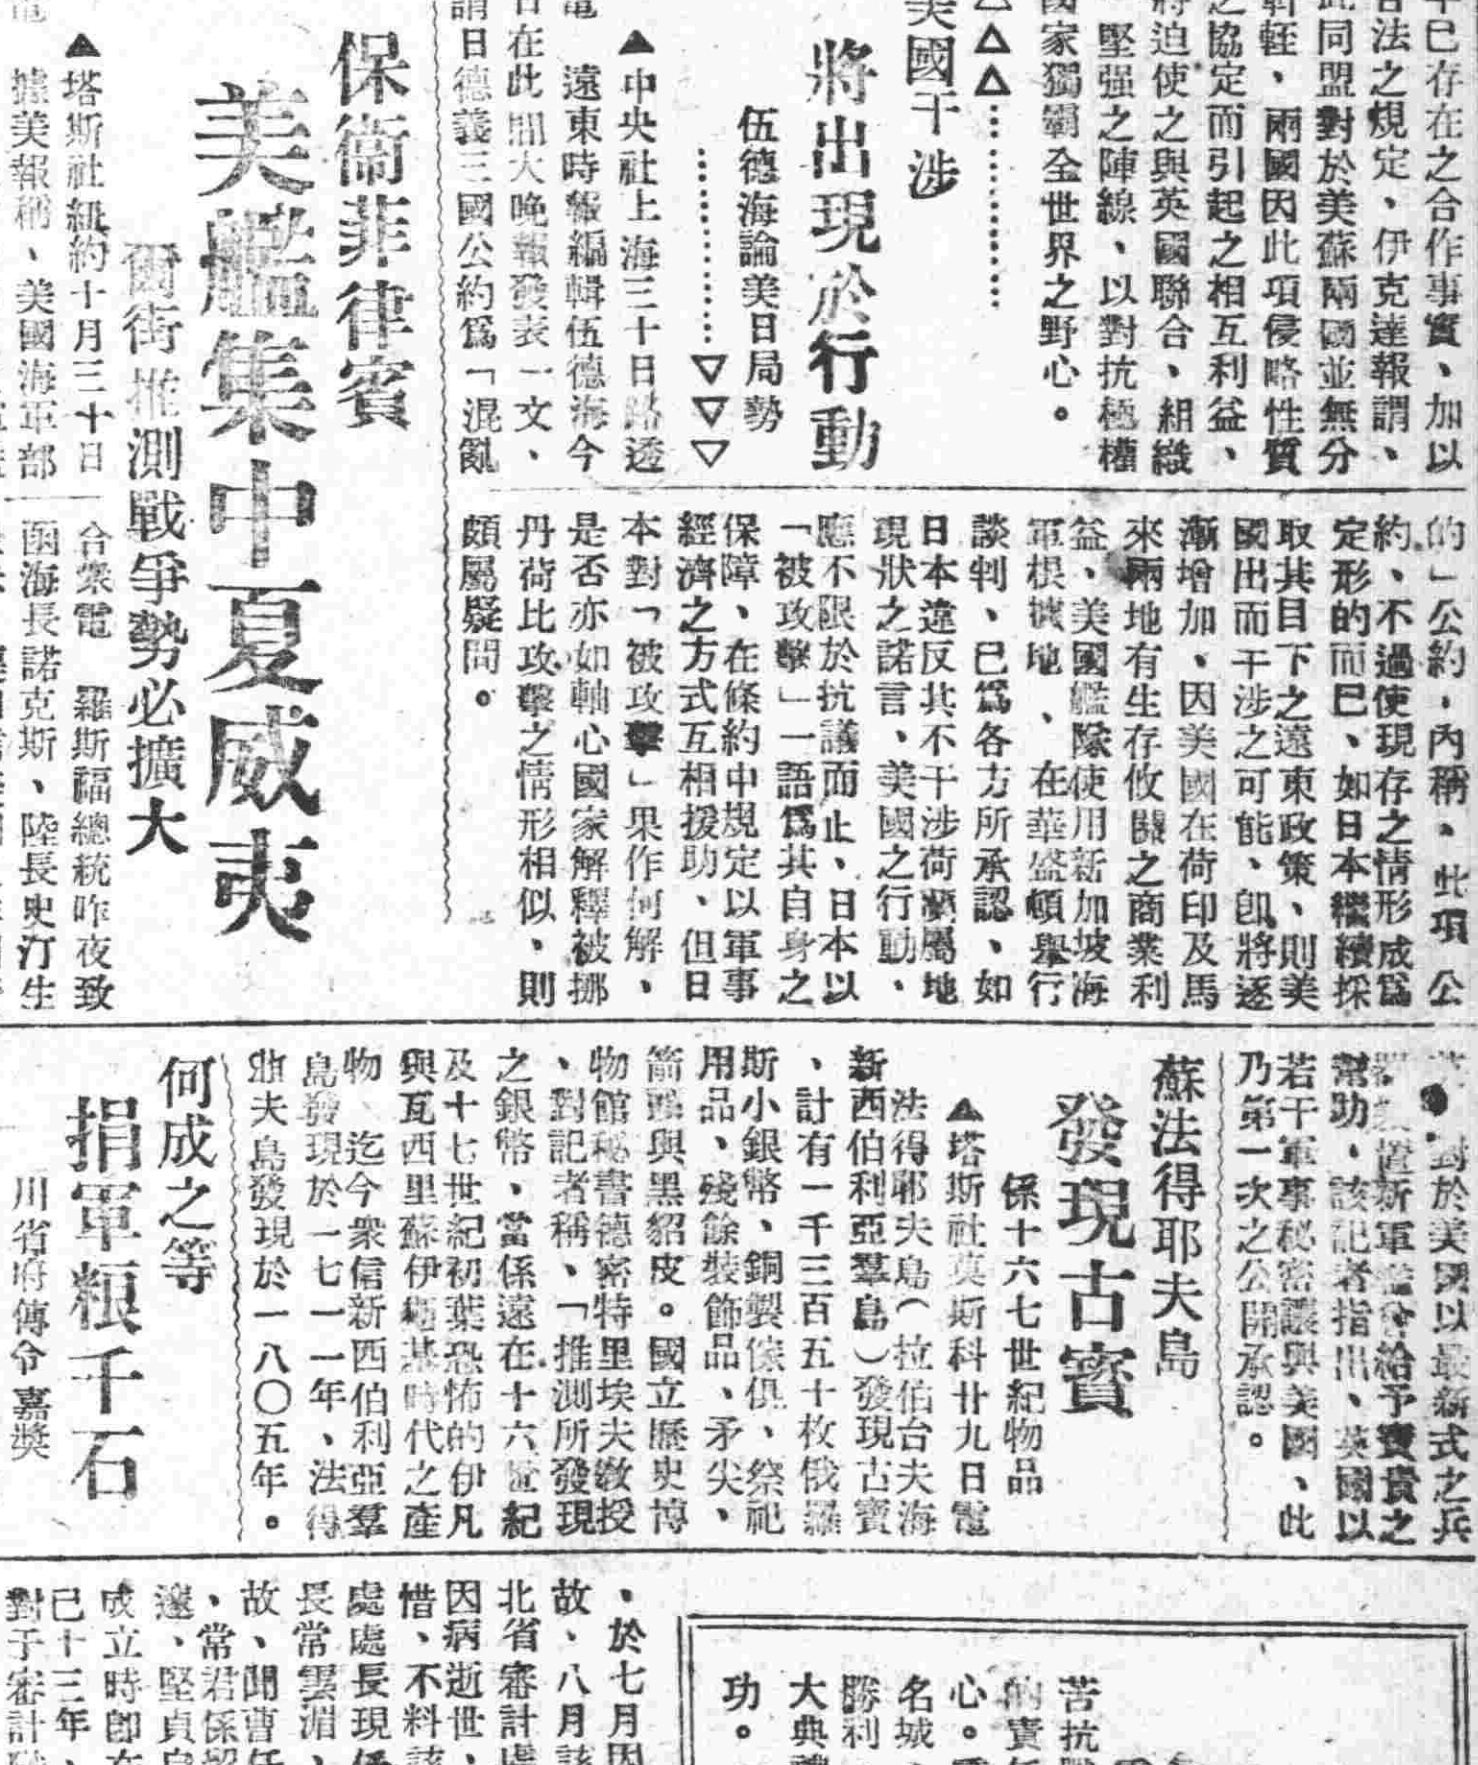 年已存在之合作事實、加以
合法之規定、伊克達報謂、
此同盟對於美蘇兩國並無分
軒輊、兩國因此項侵略性質
之協定而引起之相互利益、
將迫使之與英國聯合、組織
堅强之陣線、以對抗極權
國家獨霸全世界之野心。
△△△
美國干涉
將出現於行動
伍德海論美日局勢
▽▽▽
▲中央社上海三十日路透
電 遠東時報編輯伍德海今
日在此間大晚報發表一文、
謂日德義三國公約爲「混亂
的」公約,內稱、此項公
約、不過使現存之情形成爲
定形的而已、如日本繼續採
取其目下之遠東政策、則美
國出而干涉之可能、卽將逐
漸增加、因美國在荷印及馬
來兩地有生存攸關之商業利
益、美國艦隊使用新加坡海
軍根據地、在華盛頓舉行
談判、已爲各方所承認、如
日本違反其不干涉荷蘭屬地
現狀之諾言、美國之行動、
應不限於抗議而止、日本以
「被攻擊」一語爲其自身之
保障、在條約中規定以軍事
經濟之方式互相援助、但日
本對「被攻擊」果作何解、
是否亦如軸心國家解釋被挪
丹荷比攻擊之情形相似、則
頗屬疑問。
保衞菲律賓
美艦集中夏威夷
爾街推測戰爭勢必擴大
▲塔斯社紐約十月三十日
電 據美報稱、美國海軍部
合衆電 羅斯福總統昨夜致
函海長諾克斯、陸長史汀生
對於美國以最新式之兵
置新軍 給予寶貴之
幫助、該記者指出、英國以
若干軍事秘密讓與美國、此
乃第一次之公開承認。
蘇法得耶夫島
發現古寶
係十六七世紀物品
▲塔斯社莫斯科廿九日電
法得耶夫島(拉伯台夫海
新西伯利亞羣島)發現古寶
、計有一千三百五十枚俄羅
斯小銀幣、銅製傢俱、祭祀
用品、殘餘裝飾品、矛尖、
箭頭與黑貂皮。國立歷史博
物館秘書德密特里埃夫敎授
、對記者稱、「推測所發現
之銀幣、當係遠在十六世紀
及十七世紀初葉恐怖的伊凡
與瓦西里蘇伊 基時代之產
物、迄今衆信新西伯利亞羣
島發現於一七一一年、法得
耶夫島發現於一八〇五年。
何成之等
捐軍粮千石
川省府傳令嘉獎
、於七月因
故、八月該
北省審計處
因病逝世、
惜、不料該
處處長現係
長常雲湄、
故、聞曹任
、常君係
邃、堅貞
成立時卽在
已十三年、
對于審計
苦抗戰
的寶
心。
名城
勝利
大典禮
功。